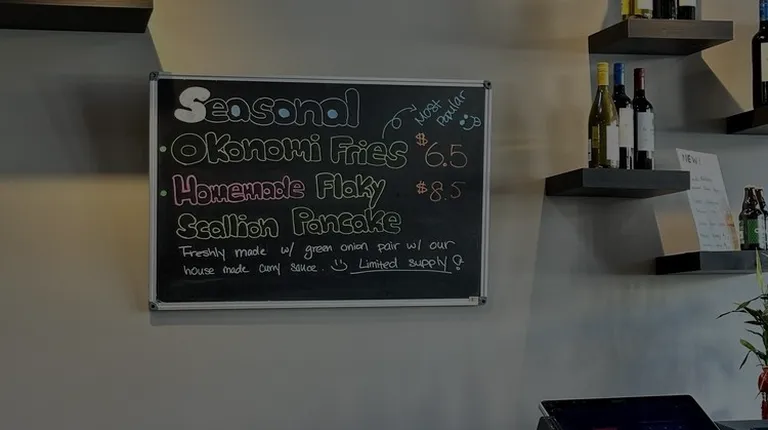 Seasonal
Most Popular
Okonomi Fries $6.5
Homemade Flaky $8.5
Scallion Pancake
Freshly made w/ green onion pair w/ our
house made curry sauce. Limited supply!
NEW!